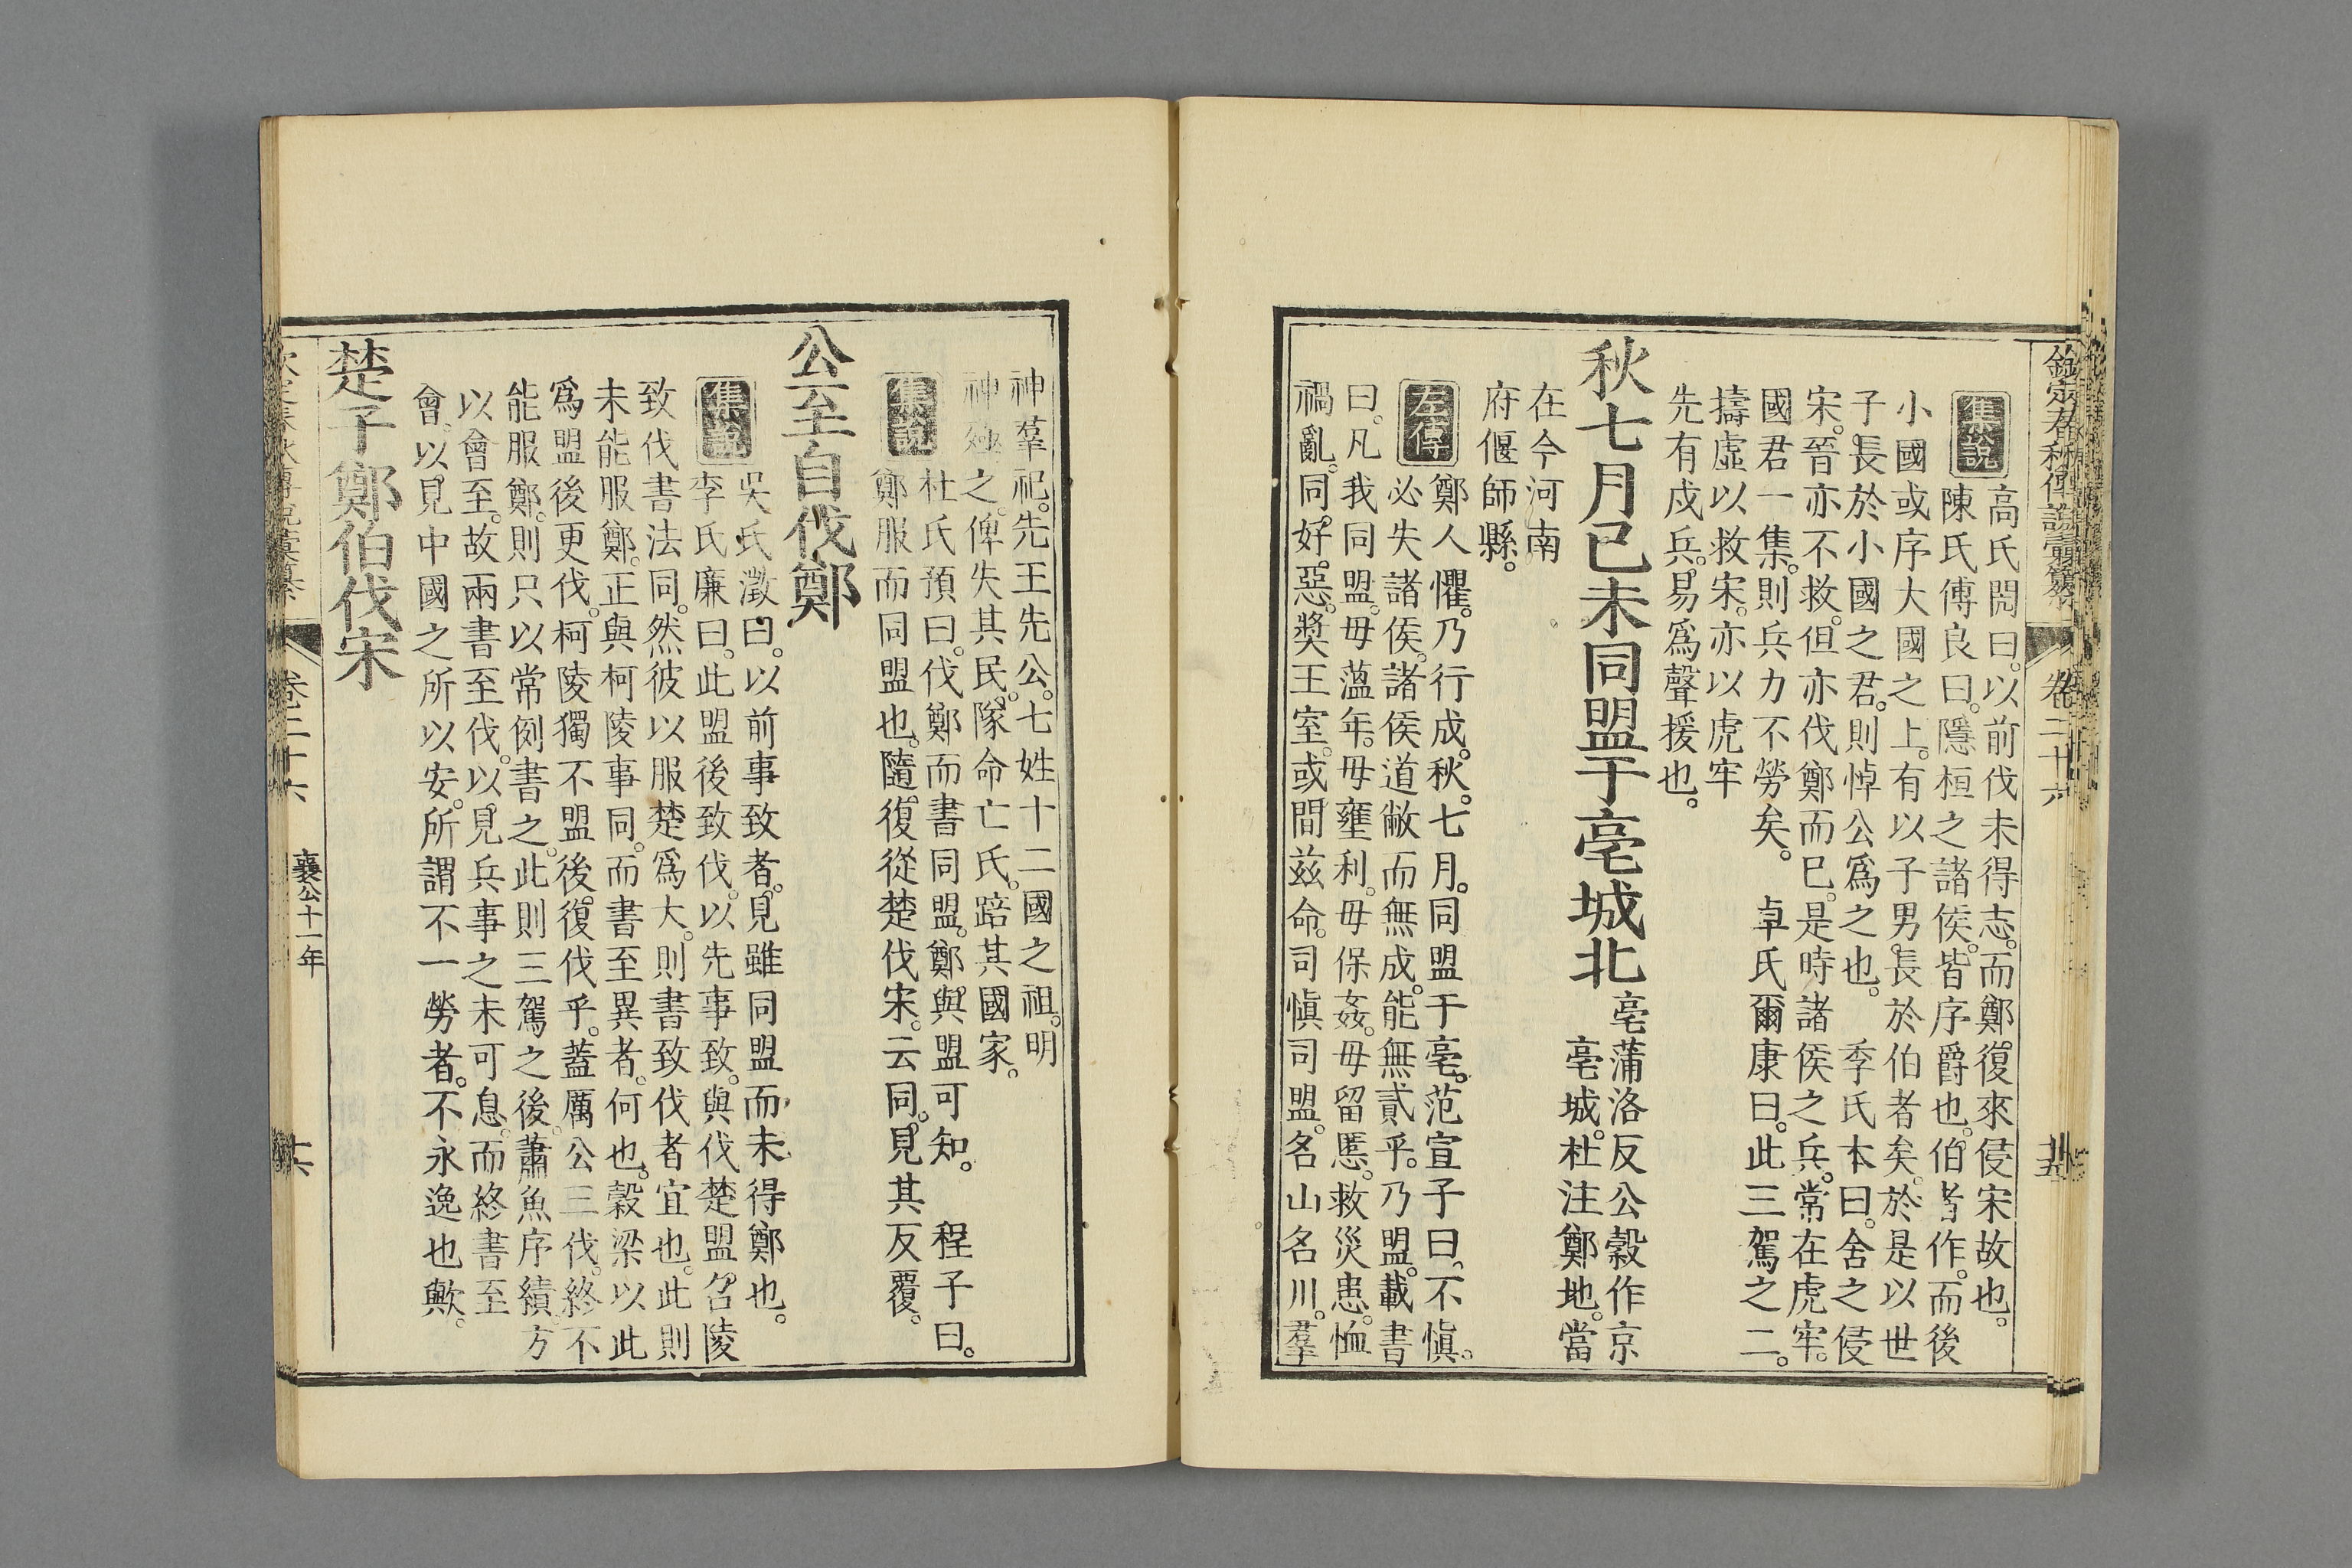 欽定春秋傳說彙纂 卷二十六 十五
集說
高氏閌曰。以前伐未得志。而鄭復來侵宋故也。
陳氏傅良曰。隱桓之諸侯。皆序爵也。伯者作。而後
小國或序大國之上。有以子男。長於伯者矣。於是以世
子。長於小國之君。則悼公爲之也。 季氏本曰。舍之侵
宋。晉亦不救。但亦伐鄭而巳。是時諸侯之兵。常在虎牢。
國君一集。則兵力不勞矣。 卓氏爾康曰。此三駕之二。
擣虛以救宋。亦以虎牢
先有戍兵。易爲聲援也。
秋七月已未同盟于亳城北
亳蒲洛反公穀作京
亳城。杜注鄭地。當
在今河南
府偃師縣。
左傳
鄭人懼。乃行成。秋。七月。同盟于亳。范宣子曰。不愼。
必失諸侯。諸侯道敝而無成。能無貳乎。乃盟。載書
曰。凡我同盟。毋薀年。毋壅利。毋保姦。毋留慝。救災患。恤
禍亂。同好惡。奬王室。或間茲命。司愼司盟。名山名川。羣
神羣祀。先王先公。七姓十二國之祖。明
神殛之。俾失其民。隊命亡氏。踣其國家。
集說
杜氏預曰。伐鄭而書同盟。鄭與盟可知。 程子曰。
鄭服而同盟也。隨復從楚伐宋。云同。見其反覆。
公至自伐鄭
集說
吳氏澂曰。以前事致者。見雖同盟而未得鄭也。
李氏廉曰。此盟後致伐。以先事致。與伐楚盟召陵
致伐書法同。然彼以服楚爲大。則書致伐者宜也。此則
未能服鄭。正與柯陵事同。而書至異者。何也。穀梁以此
爲盟後更伐。柯陵獨不盟後復伐乎。蓋厲公三伐。終不
能服鄭。則只以常例書之。此則三駕之後。蕭魚序績。方
以會至。故兩書至伐。以見兵事之未可息。而終書至
會。以見中國之所以安。所謂不一勞者。不永逸也歟。
楚子鄭伯伐宋
欽定春秋傳說彙纂 卷二十六 襄公十一年 十六